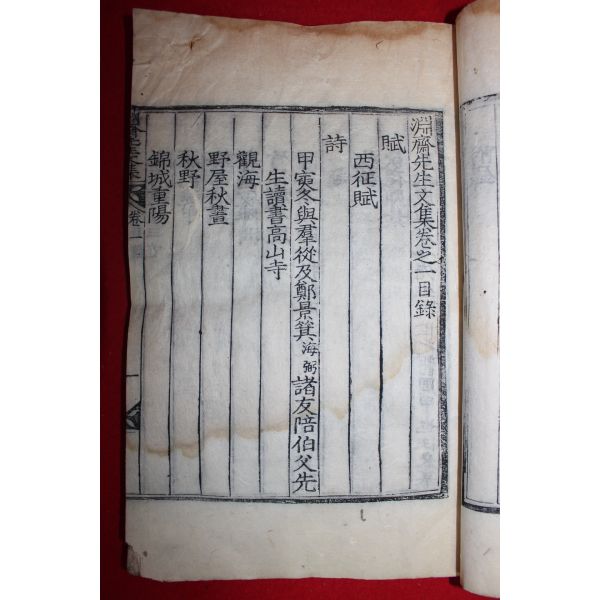 淵齋先生文集卷之一目錄
賦
西征賦
詩
甲寅冬與羣從及鄭景箕海弼諸友陪伯父先
生讀書高山寺
觀海
野屋秋晝
秋野
錦城重陽
卷一